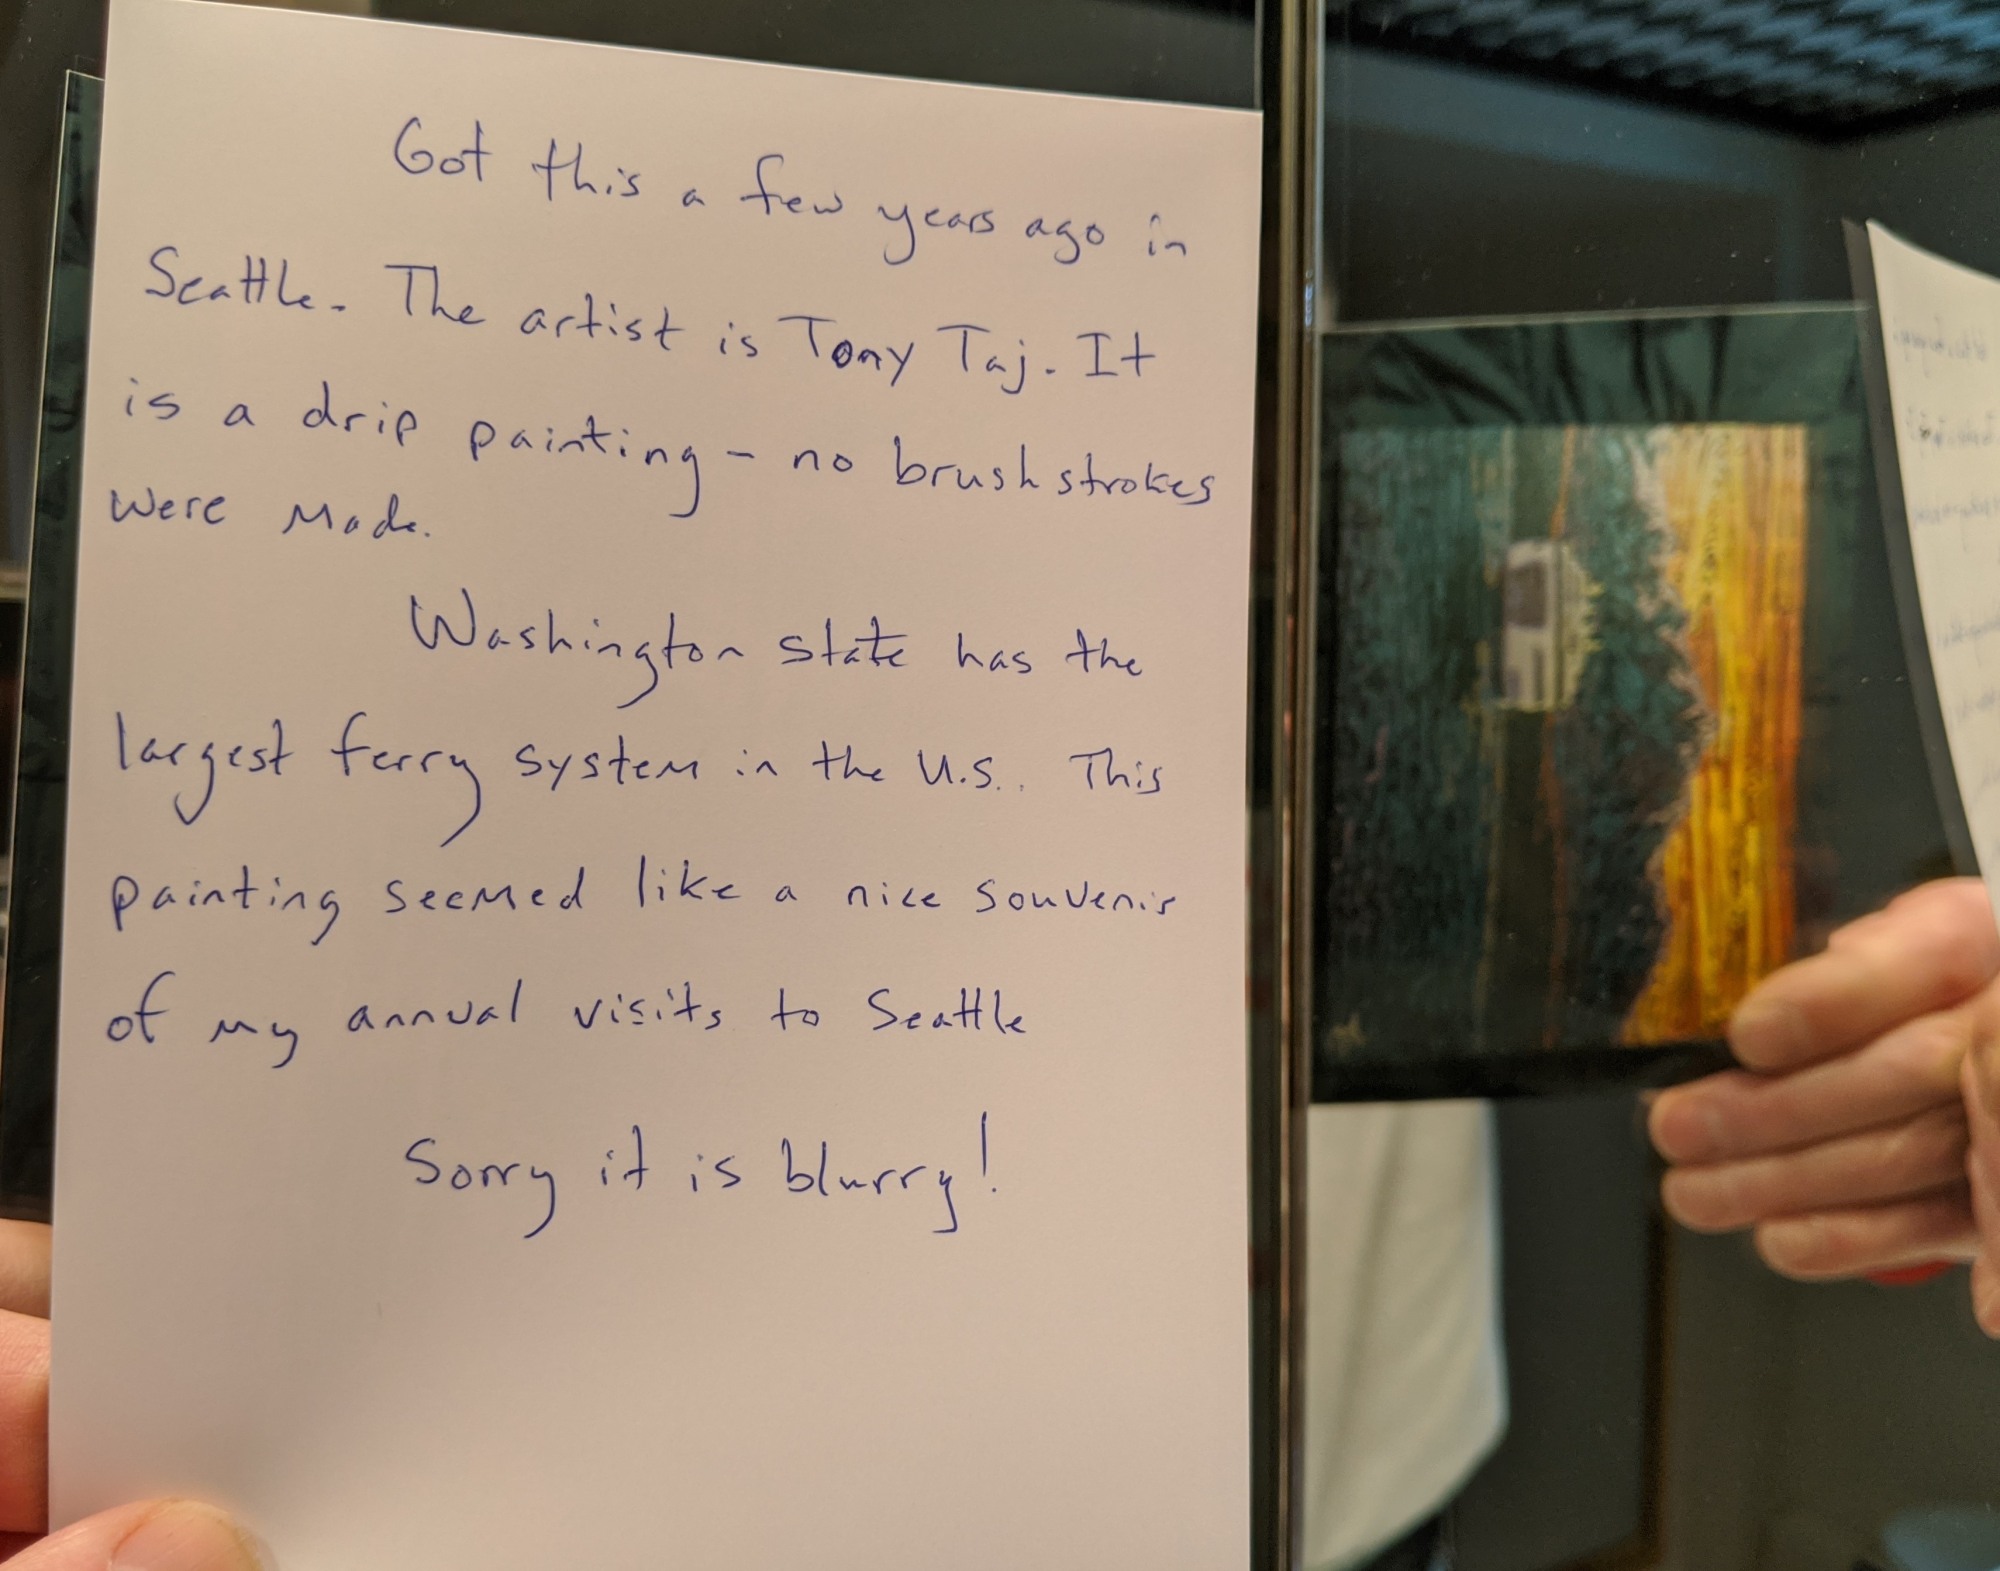 Got this a few years ago in
Seattle. The artist is Tony Taj. It
is a drip painting - no brush strokes
were made.
Washington state has the
largest ferry system in the U.S.. This
painting seemed like a nice souvenir
of my annual visits to Seattle
Sorry it is blurry!